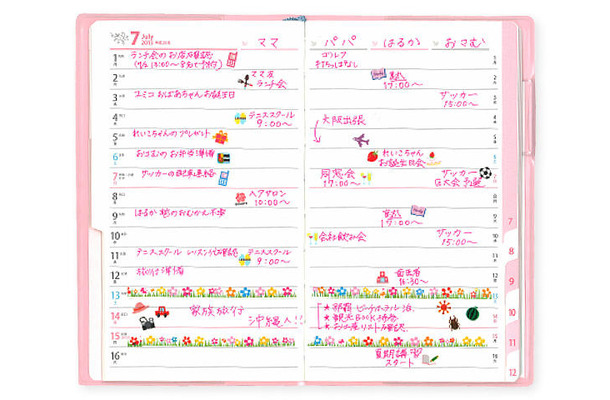 7 July
2013 平成25年
ママ
パパ
はるか
おさむ
1 ランチ会のお店確認
ゴルフ
2 ママ友
ランチ会
塾
17:00〜
3 ユミコおばあちゃんお誕生日
サッカー
15:00〜
4 テニススクール
9:00〜
大阪出張
5 れいこちゃんのプレゼント
6 おさむのお弁当準備
れいこちゃん
お誕生日会
7 サッカーの配車連絡
同窓会
17:00〜
サッカー
区大会予選
8 ヘアサロン
10:00〜
9 はるか塾のおむかえ不要
塾
17:00〜
10 会社飲み会
サッカー
15:00〜
11 テニススクール レッスン代確認
テニススクール
9:00〜
12 旅行準備
歯医者
16:30〜
13
14 家族旅行
沖縄入!!
★那覇ビーチホテル泊
★観光BOOK持参
★お土産リスト確認
15
16 夏期講習
スタート
7
8
9
10
11
12